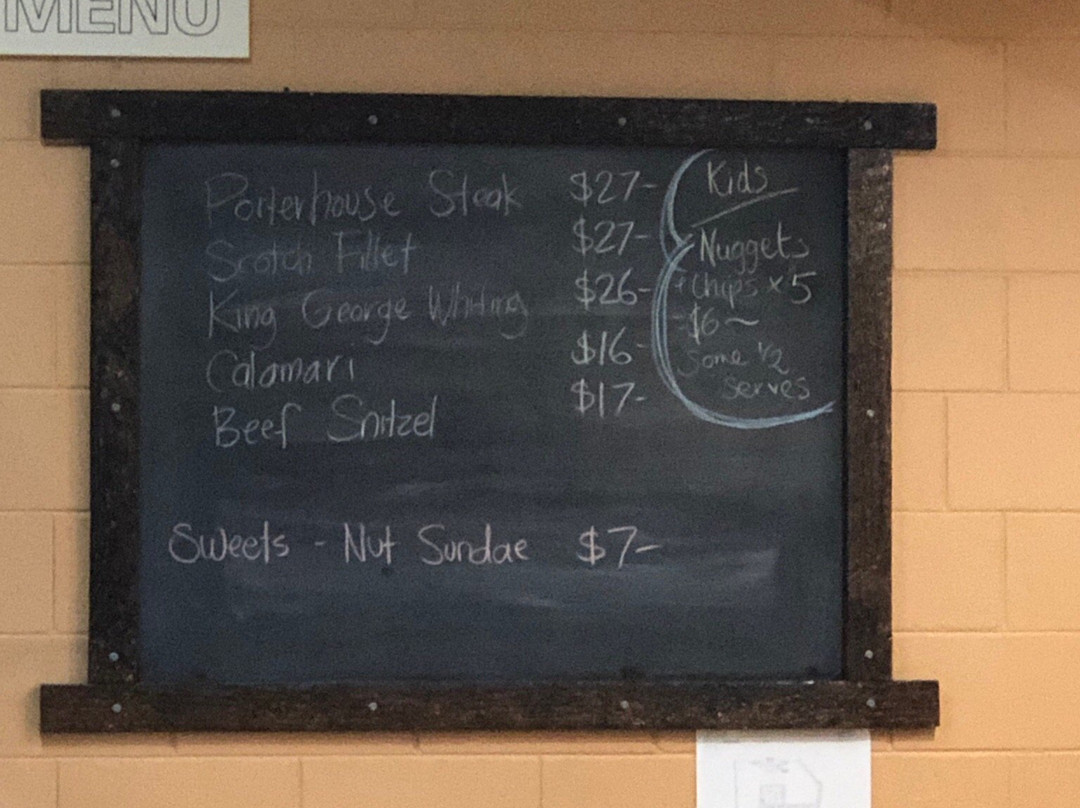 MENU
Porterhouse Steak $27-
Scotch Fillet $27-
King George Whiting $26-
Calamari $16-
Beef Snitzel $17-
Sweets - Nut Sundae $7-
Kids
Nuggets
+ Chips x 5
- $6 ~
Some 1/2
serves